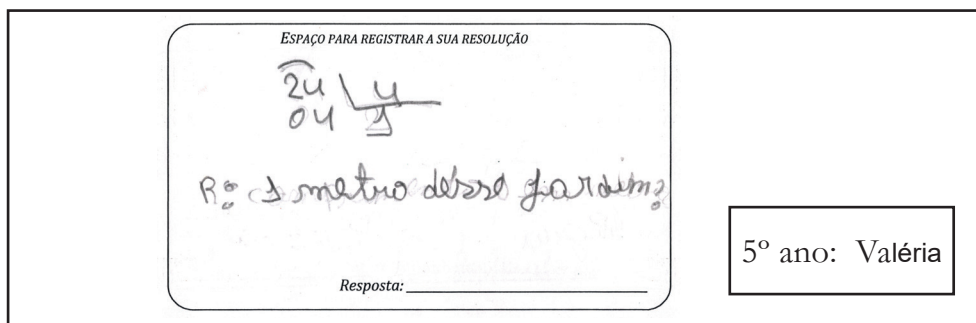 ESPAÇO PARA REGISTRAR A SUA RESOLUÇÃO
24 4
04 1
R: 1 metro desse jardim?
Resposta:
5º ano: Valéria